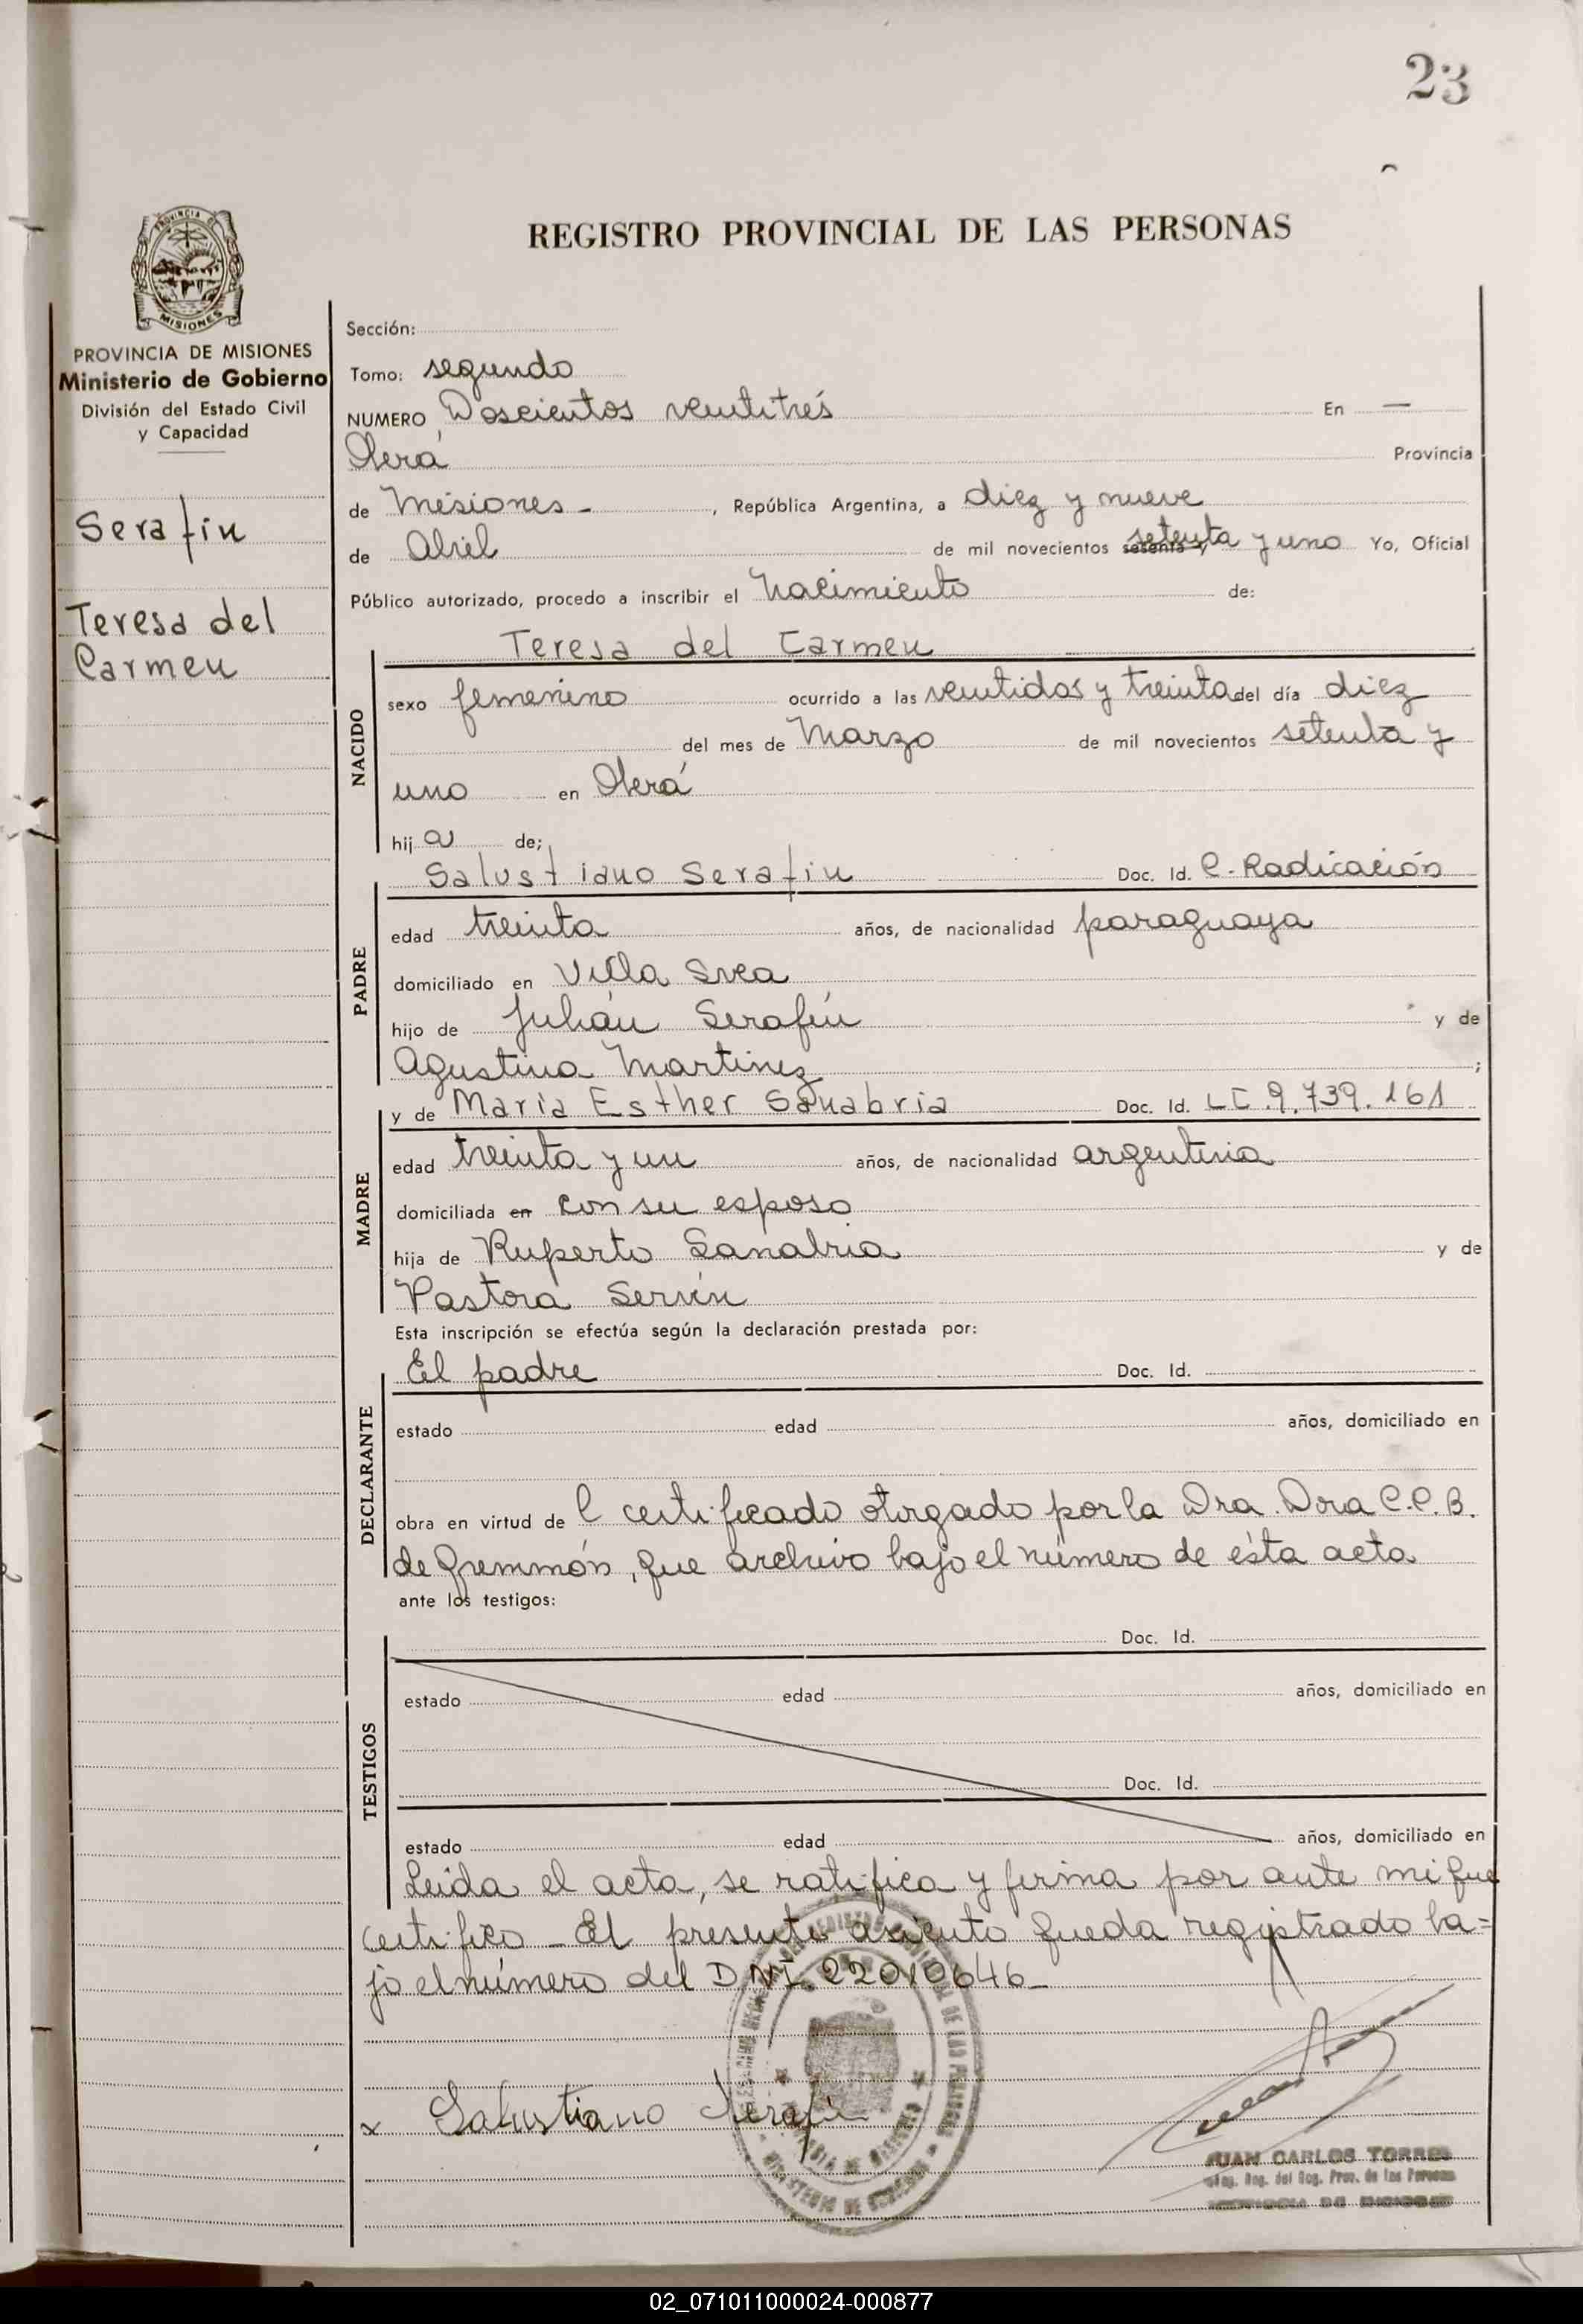 23
REGISTRO PROVINCIAL DE LAS PERSONAS
PROVINCIA DE MISIONES
Ministerio de Gobierno
División del Estado Civil
y Capacidad
Serafin
Teresa del
Carmen
Sección:
Tomo: segundo
NUMERO Doscientos ventitrés En —
Oberá Provincia
de Misiones - , República Argentina, a diez y nueve
de Abril de mil novecientos sesenta y setenta y uno Yo, Oficial
Público autorizado, procedo a inscribir el Nacimiento de:
Teresa del Carmen
NACIDO
sexo femenino ocurrido a las ventidos y treinta del día diez
del mes de Marzo de mil novecientos setenta y
uno en Oberá
hij a de;
Salustiano Serafin Doc. Id. C. Radicación
PADRE
edad treinta años, de nacionalidad paraguaya
domiciliado en Villa Svea
hijo de Julián Serafín y de
Agustina Martinez ;
y de Maria Esther Sanabria Doc. Id. LC.9.739.161
MADRE
edad treinta y un años, de nacionalidad argentina
domiciliada en con su esposo
hija de Ruperto Sanabria y de
Pastora Servín
Esta inscripción se efectúa según la declaración prestada por:
El padre Doc. Id.
DECLARANTE
estado edad años, domiciliado en
obra en virtud de l certificado otorgado por la Dra. Dora C.C.B.
de que archivo bajo el número de ésta acta
ante los testigos:
Doc. Id.
TESTIGOS
estado edad años, domiciliado en
Doc. Id.
estado edad años, domiciliado en
Leida el acta, se ratifica y firma por ante mi que
certifico - El presente asiento queda registrado ba=
jo el número del DNI. 22010646-
x Salustiano Serafin
JUAN CARLOS TORRES
del Reg. Prov. de las Personas
02_071011000024-000877